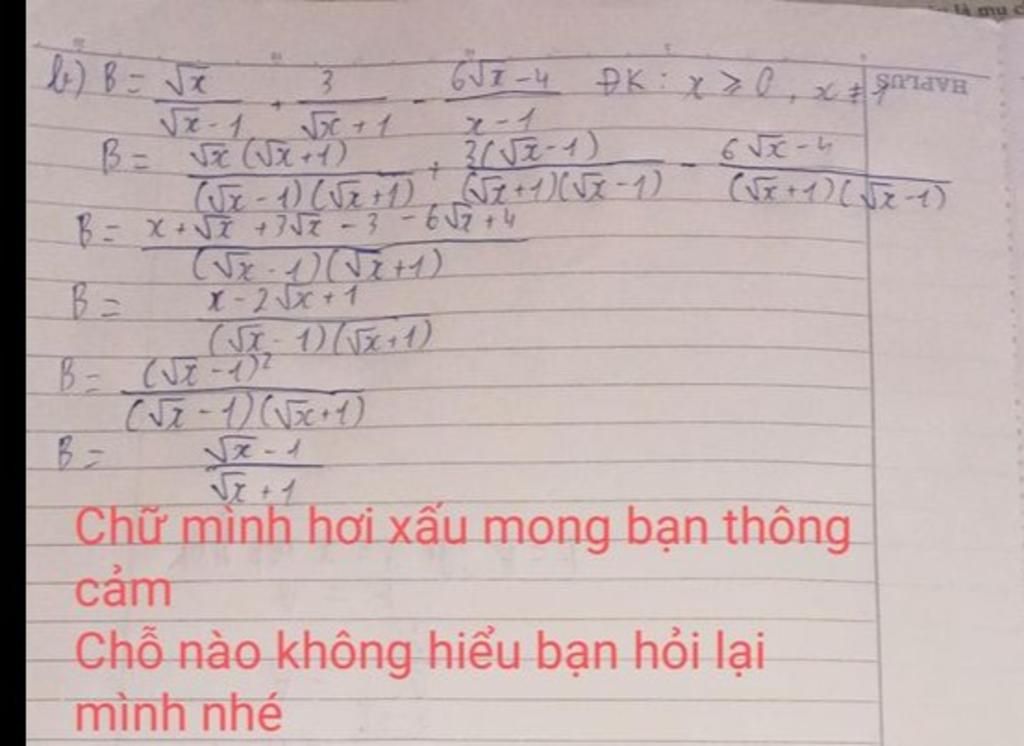 là mu c
HAPLUS
b) B = √x/(√x - 1) + 3/(√x + 1) - (6√x - 4)/(x - 1) ĐK: x ⩾ 0, x ≠ 1
B = √x(√x+1)/((√x - 1)(√x + 1)) + 3(√x - 1)/((√x+1)(√x - 1)) - (6√x - 4)/((√x+1)(√x - 1))
B = (x + √x + 3√x - 3 - 6√x + 4)/((√x - 1)(√x+1))
B = (x - 2√x + 1)/((√x - 1)(√x+1))
B = (√x - 1)²/((√x - 1)(√x+1))
B = (√x - 1)/(√x + 1)
Chữ mình hơi xấu mong bạn thông
cảm
Chỗ nào không hiểu bạn hỏi lại
mình nhé